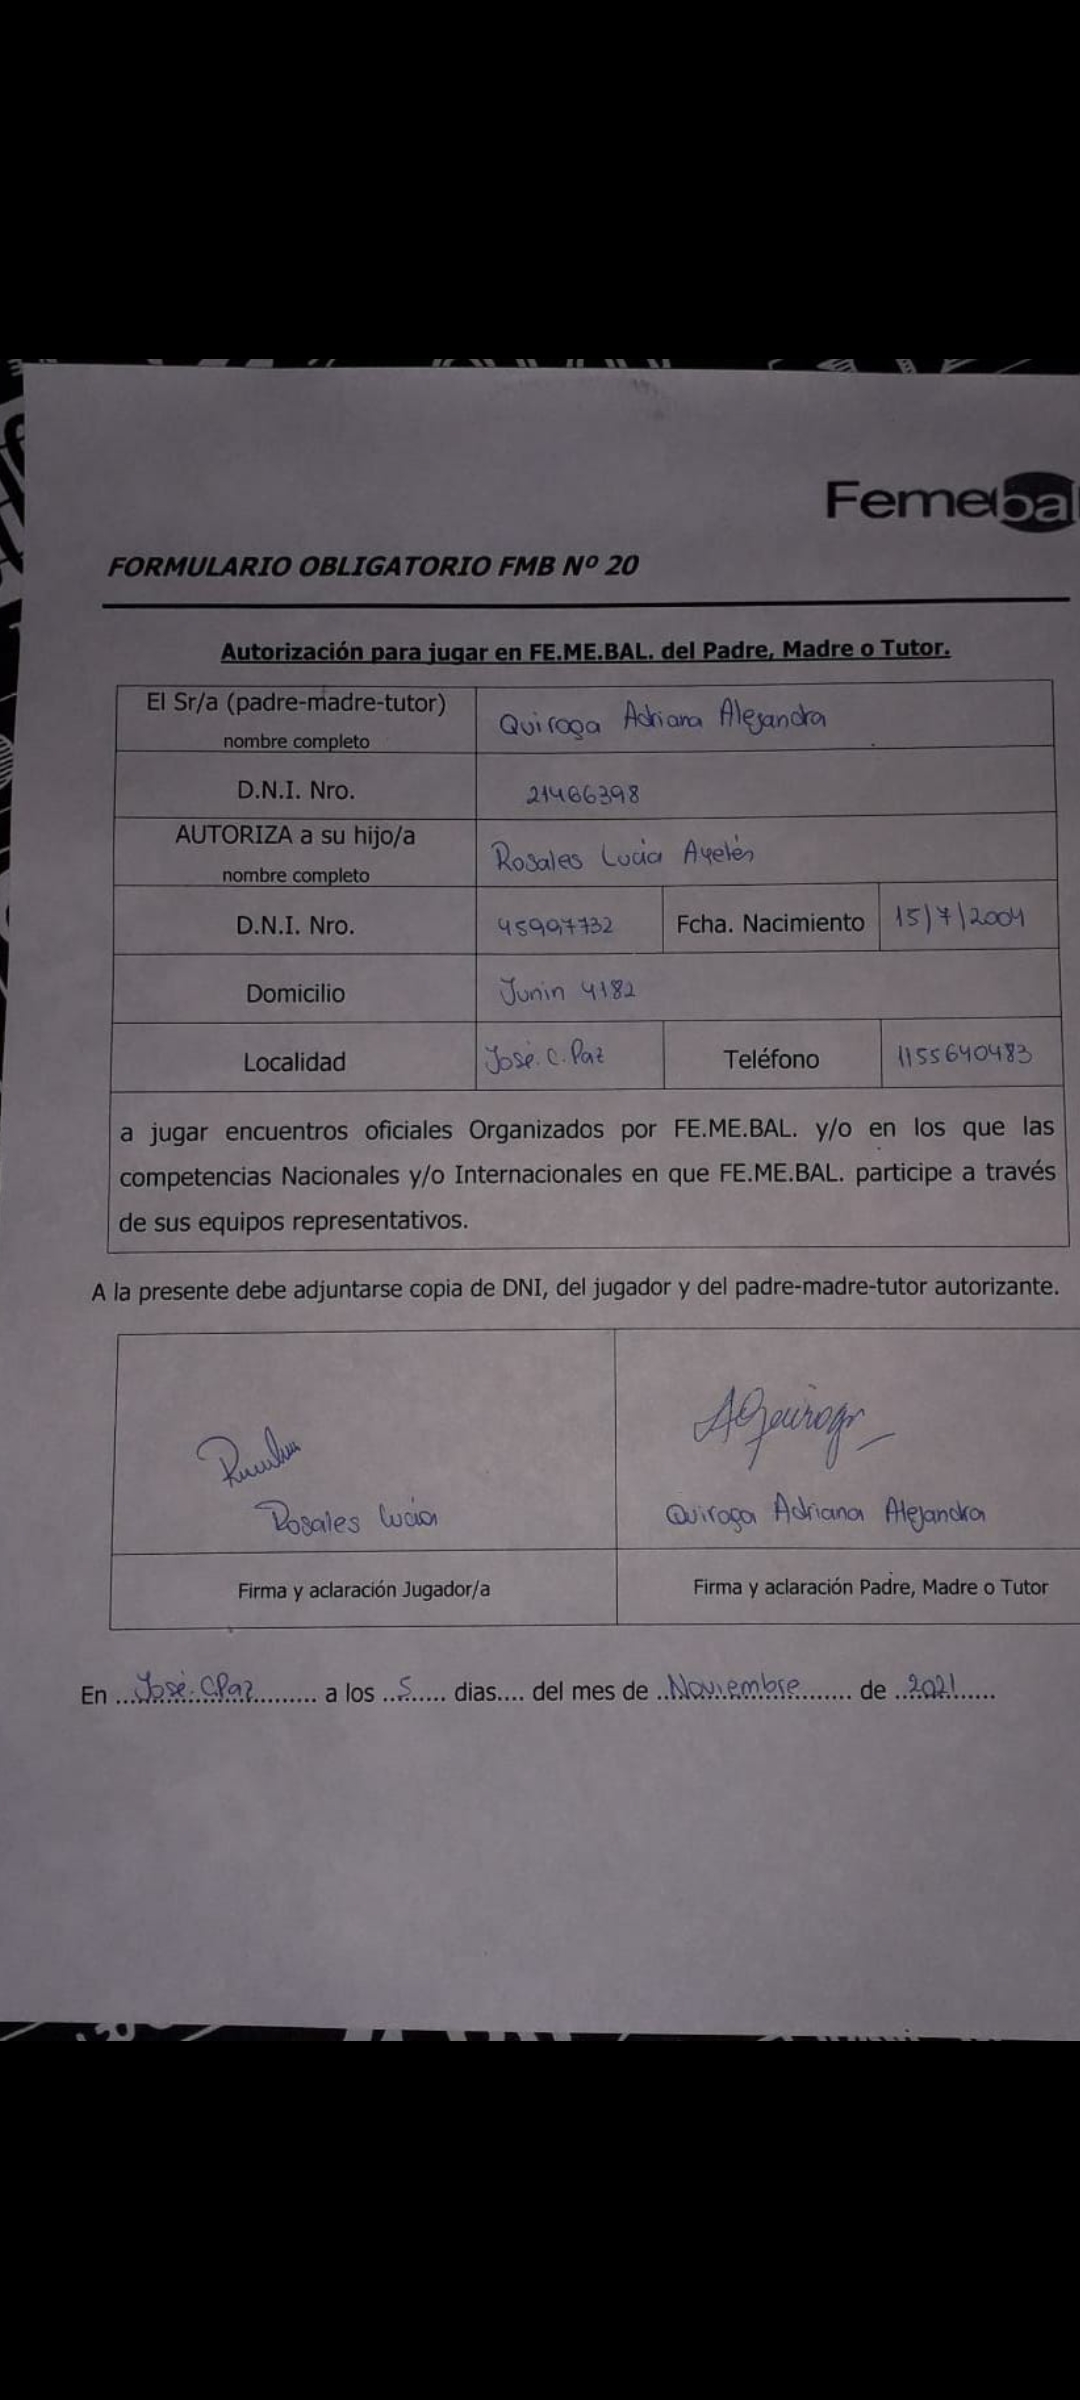 Femebal
FORMULARIO OBLIGATORIO FMB Nº 20
Autorización para jugar en FE.ME.BAL. del Padre, Madre o Tutor.
El Sr/a (padre-madre-tutor) Quiroga Adriana Alejandra
nombre completo
D.N.I. Nro. 21466398
AUTORIZA a su hijo/a Rosales Lucía Ayelén
nombre completo
D.N.I. Nro. 45997732 Fcha. Nacimiento 15/7/2004
Domicilio Junin 4182
Localidad José.C.Paz Teléfono 1155640483
a jugar encuentros oficiales Organizados por FE.ME.BAL. y/o en los que las
competencias Nacionales y/o Internacionales en que FE.ME.BAL. participe a través
de sus equipos representativos.
A la presente debe adjuntarse copia de DNI, del jugador y del padre-madre-tutor autorizante.
AQuiroga
Rosales Lucía Quiroga Adriana Alejandra
Firma y aclaración Jugador/a Firma y aclaración Padre, Madre o Tutor
En ...José.C.Paz......... a los ..5...... dias.... del mes de ..Noviembre........ de ..2021......